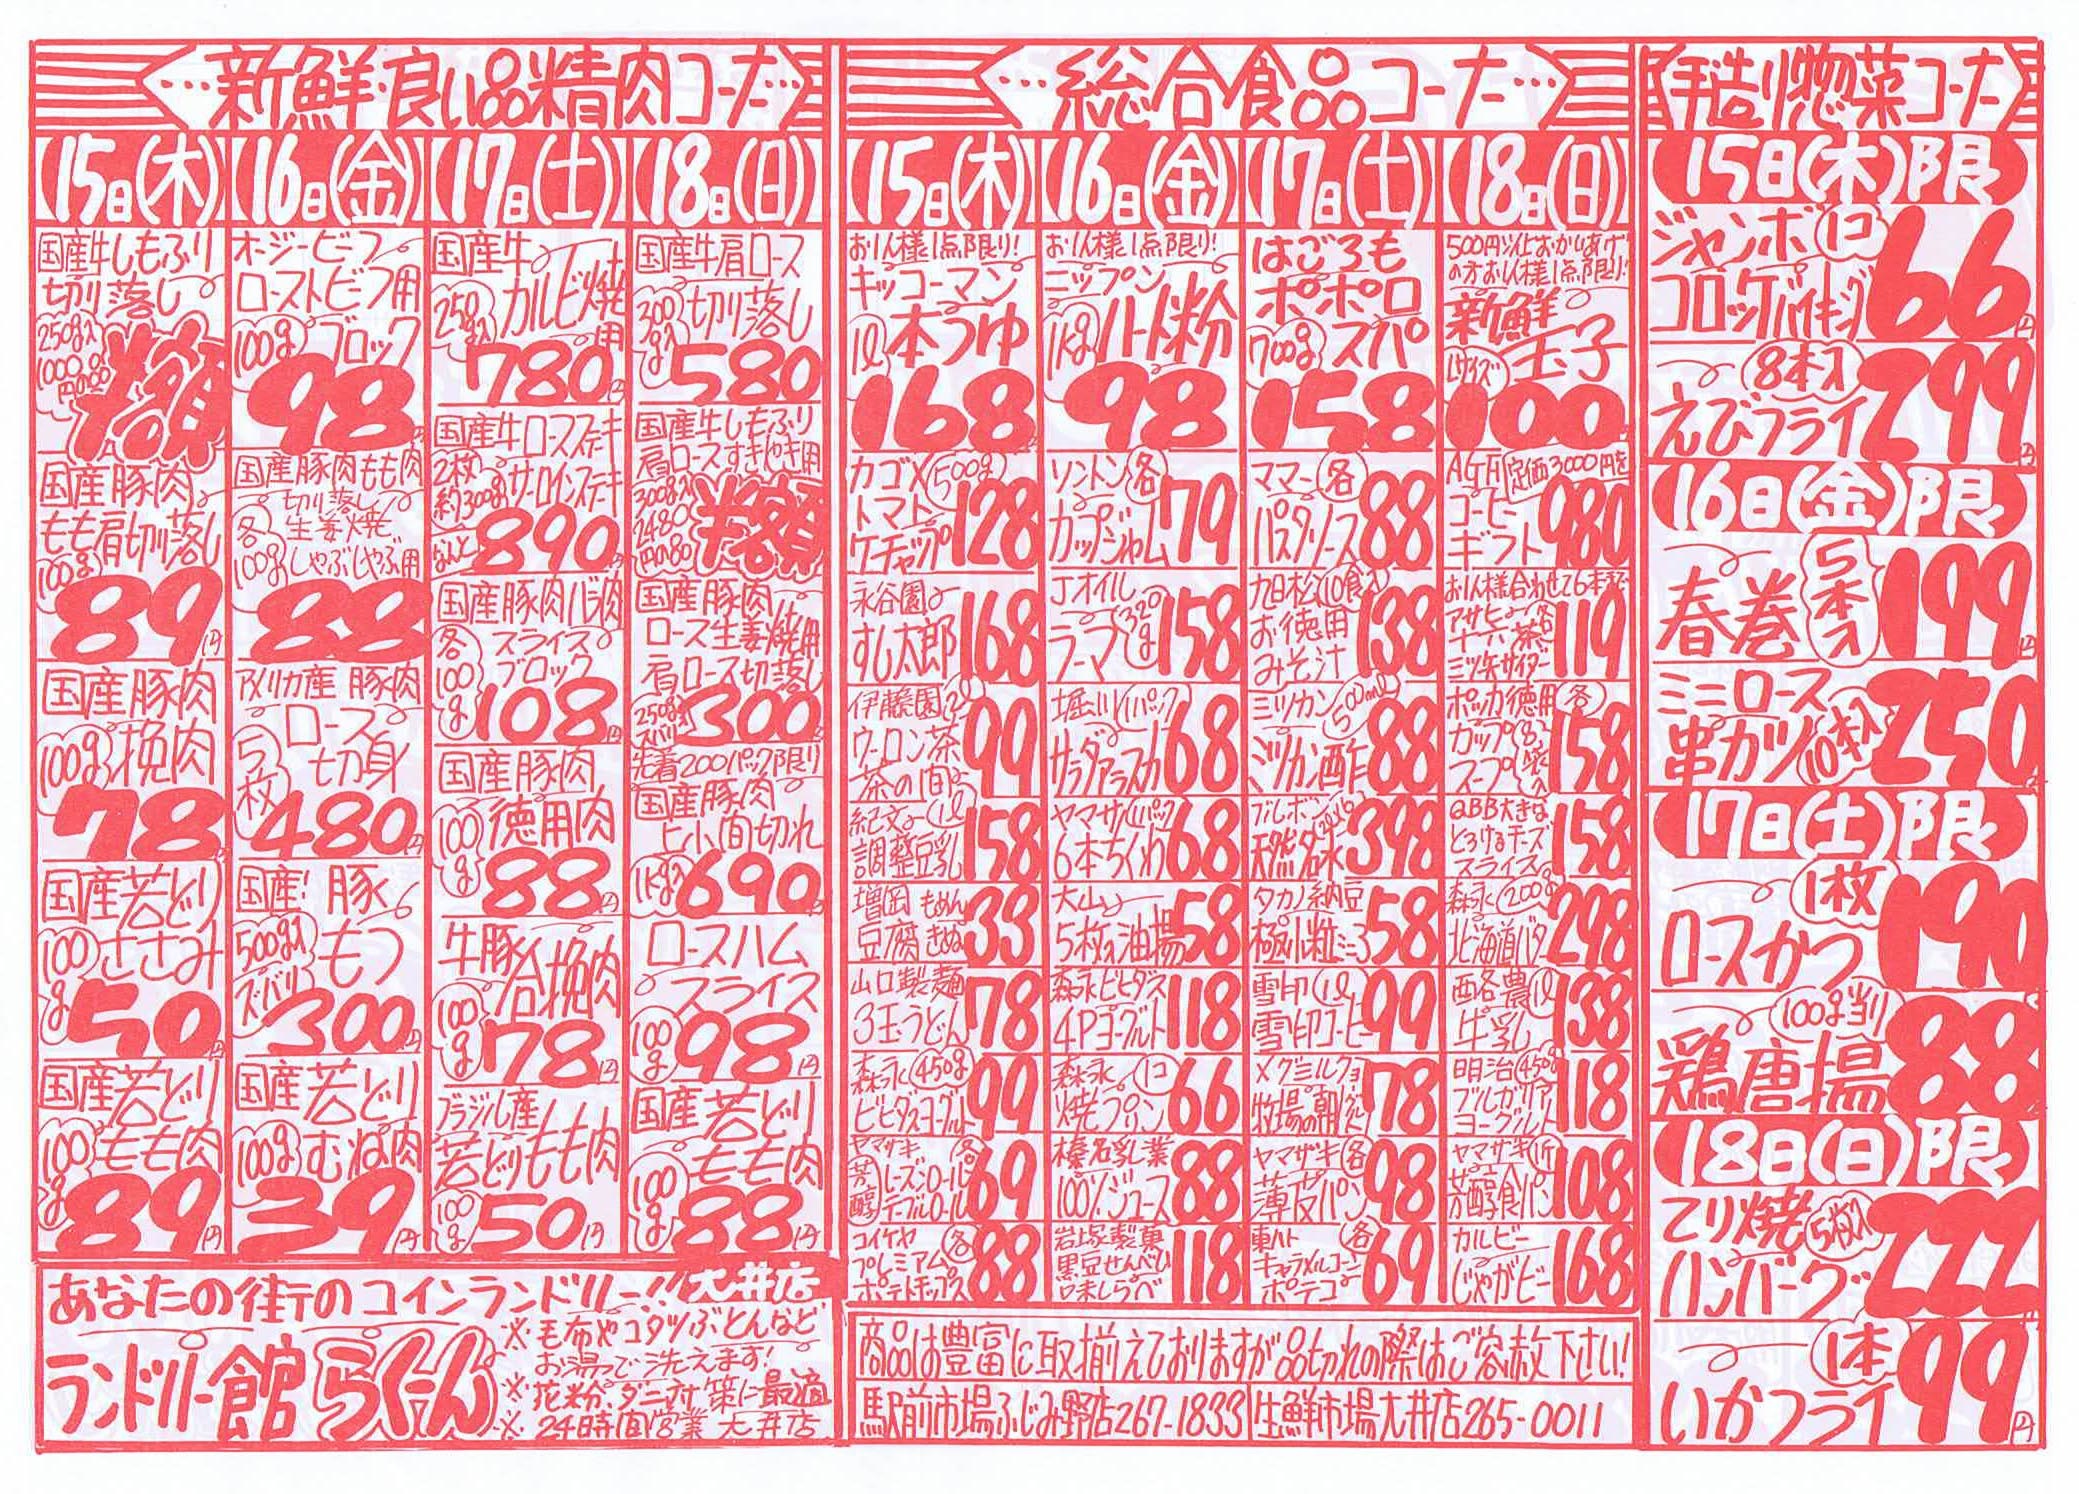 新鮮・良い品精肉コーナー
15日(木)
国産牛しもふり
切り落し
250g入
1000円の品
半額
国産豚肉
もも肩切り落し
100g
89円
国産豚肉
100g 挽肉
78円
国産若どり
100g ささみ
50円
国産若どり
100g もも肉
89円
16日(金)
オージービーフ
ローストビーフ用
100g ブロック
98円
国産豚肉もも肉
切り落し
各 生姜焼
100g しゃぶしゃぶ用
88
アメリカ産 豚肉
ロース
5枚 切身
480円
国産 豚
500g入 もつ
ズバリ
300円
国産若どり
100g むね肉
39円
17日(土)
国産牛
250g入 カルビ焼用
780円
国産牛ロースステーキ
2枚 サーロインステーキ
約300g
なんと 890円
国産豚肉バラ肉
各 スライス
100g ブロック
108円
国産豚肉
100g 徳用肉
88円
牛豚合挽肉
100g
78円
ブラジル産
若どりもも肉
100g
50円
18日(日)
国産牛肩ロース
300g入 切り落し
580円
国産牛しもふり
肩ローススすきやき用
300g入
2480円の品
半額
国産豚肉
ロース生姜焼用
肩ロース切落し
250g入
ズバリ 300円
先着200パック限り
国産豚肉
ヒレ小間切れ
1kg入 690円
ロースハム
スライス
100g 98円
国産若どり
100g もも肉
88円
あなたの街のコインランドリー!! 大井店
ランドリー館 らくーん
※毛布やコタツぶとんなど
お湯で洗えます!
※花粉、ダニ対策に最適
※24時間営業 大井店
総合食品コーナー
15日(木)
お1人様1点限り!
キッコーマン
1ℓ 本つゆ
168円
カゴメ 500g
トマト
ケチャップ 128
永谷園
すし太郎 168
伊藤園 2ℓ
ウーロン茶
茶の間 99
紀文 1ℓ
調整豆乳 158
増岡 もめん
豆腐 きぬ 33
山口製麺
3玉うどん 78
森永 450g
ビヒダスヨーグルト 99
ヤマザキ 各
芳醇 レーズンロール
テーブルロール 69
コイケヤ 各
プレミアム
ポテトチップス 88
16日(金)
お1人様1点限り!
ニップン
1kg ハート粉
98円
ソントン 各
カップジャム 79
Jオイル
ラーマ 320g 158
堀川 1パック
サラダアラスカ 68
ヤマサ 1パック
6本ちくわ 68
大山
5枚入油揚 58
森永ビヒダス
4Pヨーグルト 118
森永 1コ
焼プリン 66
榛名乳業
100%ジュース 88
岩塚製菓
黒豆せんべい
味しらべ 118
17日(土)
はごろも
ポポロ
700g スパ
158円
ママー 各
パスタソース 88
九日松 10食入
お徳用
みそ汁 138
ミツカン 500ml
ミツカン酢 88
ブルボン
天然名水 398
タカノ納豆
極小粒ミニ3 58
雪印 1ℓ
雪印コーヒー 99
メグミルク
牧場の朝ヨーグルト 78
ヤマザキ 各
薄皮パン 98
東ハト 各
キャラメルコーン
ポテコ 69
18日(日)
500円以上お買いあげ
の方お1人様1点限り!
新鮮
Lサイズ 玉子
100円
AGF 定価3000円を
コーヒー
ギフト 980
お1人様合わせて6本まで
アサヒ 各
十六茶
三ツ矢サイダー 119
ポッカ徳用 各
カップ 8袋
スープ 158
QBB大きな
とろけるチーズ
スライス 158
森永 200g
北海道バター 298
西酪農 1ℓ
牛乳 138
明治 450g
ブルガリア
ヨーグルト 118
ヤマザキ 1斤
芳醇食パン 108
カルビー
じゃがビー 168
商品は豊富に取揃えておりますが品切れの際はご容赦下さい!
駅前市場ふじみ野店267-1833 生鮮市場大井店265-0011
手造り惣菜コーナー
15日(木)限
ジャンボ 1コ
コロッケバイキング 66円
8本入
えびフライ 299円
16日(金)限
春巻 5本入 199円
ミニロース
串カツ 10本入 250
17日(土)限
1枚
ロースかつ 190
100g当り
鶏唐揚 88
18日(日)限
てり焼 5枚入
ハンバーグ 222
1本
いかフライ 99円